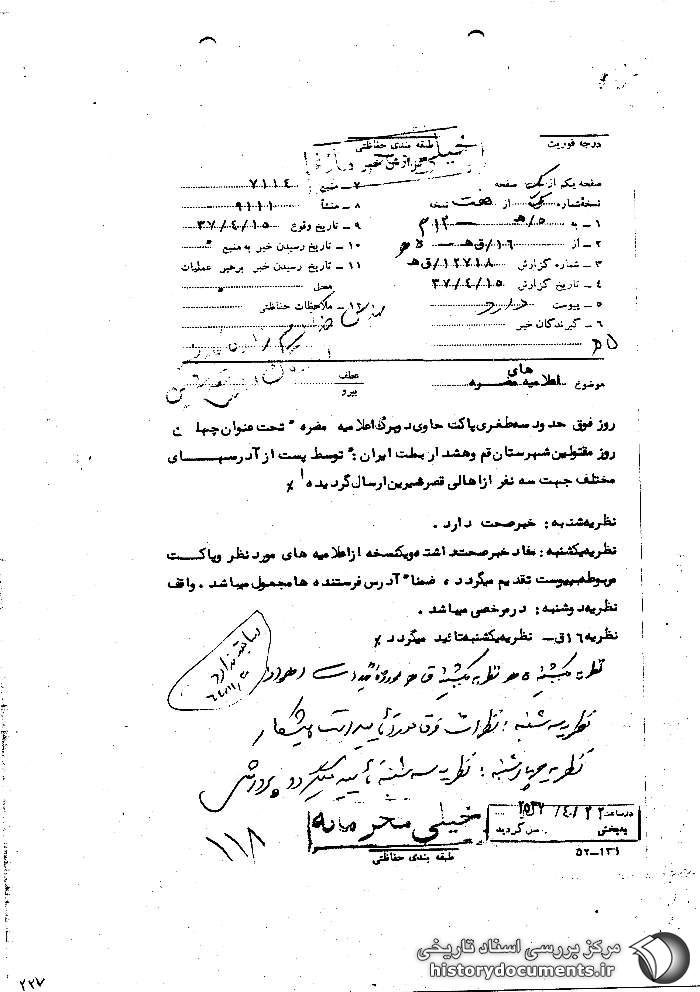 درجه فوریت
طبقه بندی حفاظتی
گزارش خبر
صفحه یکم از یک صفحه
نسخه شماره یک از هفت نسخه
۱ ـ به ۵/هـ ۳۱۲
۲ ـ از ۱۶/ق هـ
۳ ـ شماره گزارش ۱۲۷۱۸/ق هـ
۴ ـ تاریخ گزارش ۳۷/۴/۱۵
۵ ـ پیوست دارد
۶ ـ گیرندگان خبر
۷ ـ منبع ۷۱۱۴
۸ ـ منشأ ۹۱۱۱
۹ ـ تاریخ وقوع ۳۷/۴/۱۵
۱۰ ـ تاریخ رسیدن خبر به منبع
۱۱ ـ تاریخ رسیدن خبر برهبر عملیات
محل
۱۲ ـ ملاحظات حفاظتی
موضوع اعلامیه های مضره
عطف
پیرو
روز فوق حدود سه طغری پاکت حاوی دو برگ اعلامیه مضره " تحت عنوان چهلمین
روز مقتولین شهرستان قم و هشدار بملت ایران " توسط پست از آدرسهای
مختلف جهت سه نفر از اهالی قصرشیرین ارسال گردیده
نظریه شنبه : خبر صحت دارد .
نظریه یکشنبه : مفاد خبر صحت داشته و یکنسخه از اعلامیه های مورد نظر و پاکت
مربوطه بپیوست تقدیم میگردد ، ضمنا" آدرس فرستنده ها مجهول میباشد . واقف
نظریه دوشنبه : در مرخصی میباشد .
نظریه ۱۶ ق ـ نظریه یکشنبه تائید میگردد
سابقه ندارد
نظریه سه شنبه : نظرات فوق مورد تأیید است پیشکار
نظریه چهارشنبه : نظریه سه شنبه تأیید میگردد پرورش
در ساعت ۲۵۳۷/۴/۲۲
به بخش رسید گردید
خیلی محرمانه
طبقه بندی حفاظتی
۵۲-۱۳۱
۱۱۸
مرکز بررسی اسناد تاریخی
historydocuments.ir
۲۲۷